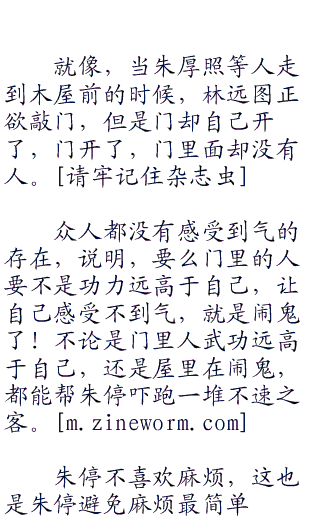 就像，当朱厚照等人走
到木屋前的时候，林远图正
欲敲门，但是门却自己开
了，门开了，门里面却没有
人。[请牢记住杂志虫]
众人都没有感受到气的
存在，说明，要么门里的人
要不是功力远高于自己，让
自己感受不到气，就是闹鬼
了！不论是门里人武功远高
于自己，还是屋里在闹鬼，
都能帮朱停吓跑一堆不速之
客。[m.zineworm.com]
朱停不喜欢麻烦，这也
是朱停避免麻烦最简单